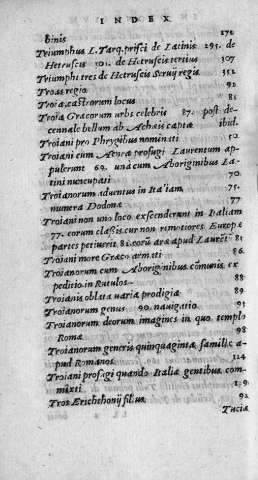 INDEX
binis 272
Triumphus L. Tarq. prisci de Latinis 295. de
Hetruscis 301. de Hetruscis tertius 307
Triumphi tres de Hetruscis Seruij regis 352
Troas regio 92
Troia, castrorum locus 81
Troia Græcorum urbs celebris 87. post de-
cennale bellum ab Achæis captæ ibid.
Troiani pro Phrygibus nominati 50
Troiani cum Aenea profugi Laurentum ap-
pulerunt 69. unà cum Aboriginibus La-
tini nuncupati 70
Troianorum aduentus in Italiam 75.
numera Dodonæ 77
Troiani non uno loco exscenderunt in Italiam
77. eorum classis cur non remotiores Europæ
partes petiuerit 81. eorū ara apud Laurēt 81
Troiani more Græco armati 86.
Troianorum cum Aboriginibus cōmunis ex
peditio in Rutulos 88.
Troianis oblata uaria prodigia 89.
Troianorum genus 90. nauigatio 91
Troianorum deorum imagines in quo templo
Romæ 98
Troianorum generis quinquaginta familiæ a-
pud Romanos 124
Troiani profugi quando Italiæ gentibus com-
mixti 139.
Tros Erichthonij filius 92
Tucia